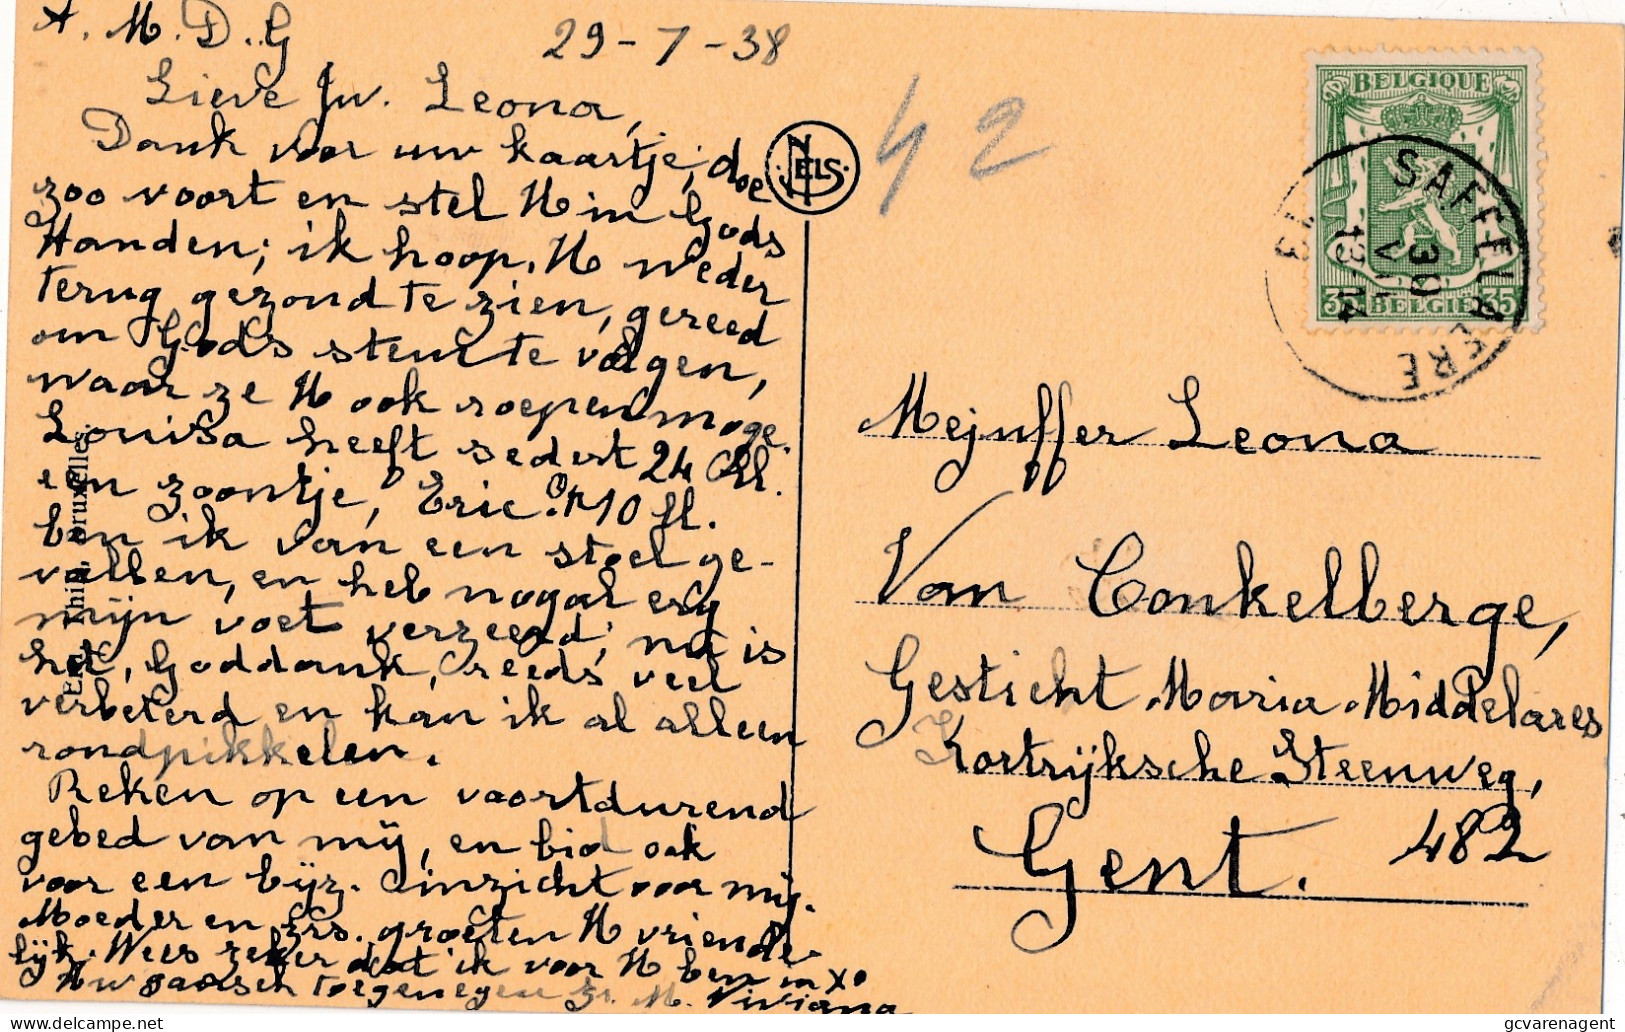 A. M. D. G
29-7-38
Lieve Juv. Leona,
Dank voor uw kaartje; doe
zoo voort en stel U in Gods
Handen; ik hoop, U weder
terug gezond te zien, gereed
om Gods stem te volgen,
waar ze U ook roepen moge.
Louisa heeft sedert 24
een zoontje, Eric. Op 10 ll.
ben ik van een stoel ge-
vallen, en heb nogal erg
mijn voet verzeerd; nu is
het, Goddank, reeds veel
verbeterd en kan ik al alleen
rondpikkelen.
Reken op een voortdurend
gebed van mij, en bid ook
voor een bijz. inzicht voor mij.
Moeder en Zrs. groeten U vriende-
lijk. Wees zeker dat ik voor U ben in X°
Uw toegenegen Zr. M. Viviana
NELS
Bruxelles
42
BELGIQUE
35 BELGIE 35
SAFFELAERE
30
VII
13-14
Mejuffer Leona
Van Conkelberge,
Gesticht Maria Middelares
Kortrijksche Steenweg,
482
Gent.
© gcvarenagent
delcampe.net